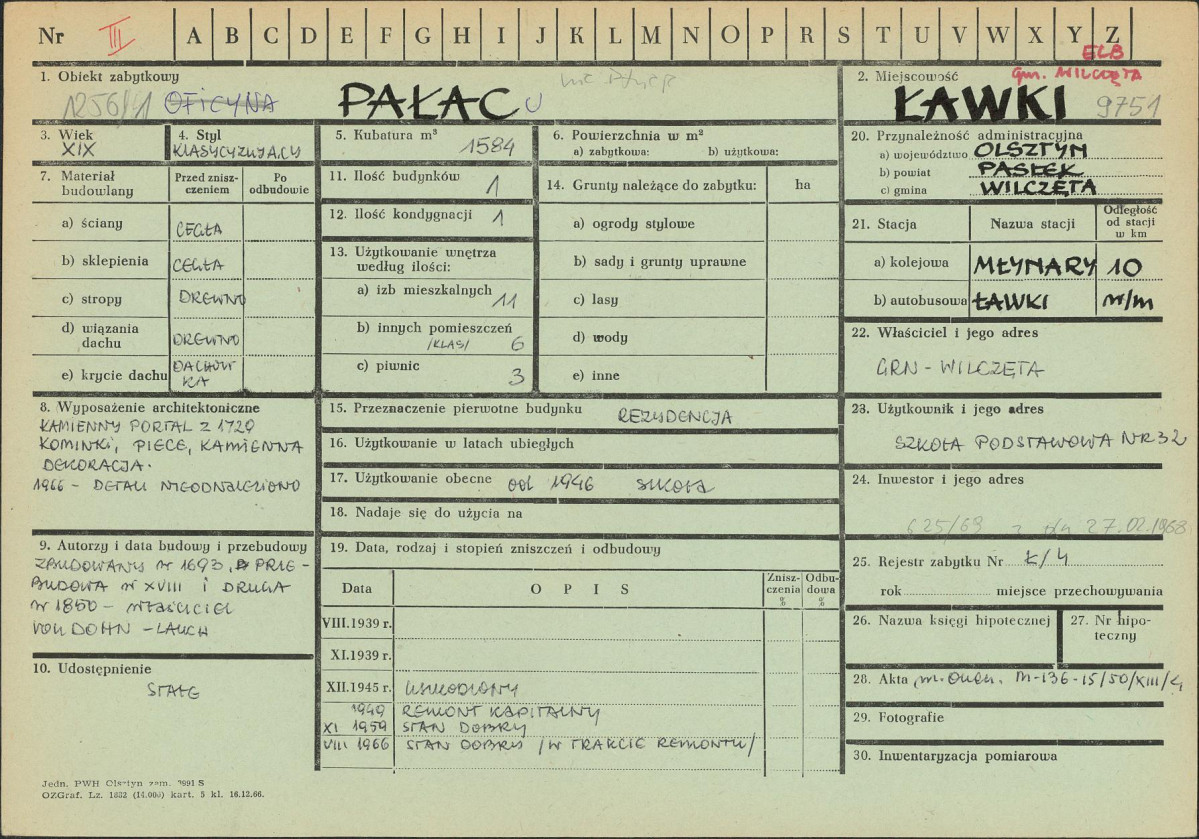 Nr III A B C D E F G H I J K L M N O P R S T U V W X Y Z
ELB
gm. WILCZĘTA
1. Obiekt zabytkowy
1256/1 OFICYNA PAŁAC U
2. Miejscowość
ŁAWKI 9751
3. Wiek
XIX
4. Styl
KLASYCYZUJĄCY
5. Kubatura m³
1584
6. Powierzchnia w m²
a) zabytkowa: b) użytkowa:
7. Materiał budowlany
Przed zniszczeniem
Po odbudowie
a) ściany CEGŁA
b) sklepienia CEGŁA
c) stropy DREWNO
d) wiązania dachu DREWNO
e) krycie dachu DACHÓWKA
11. Ilość budynków 1
12. Ilość kondygnacji 1
13. Użytkowanie wnętrza
według ilości:
a) izb mieszkalnych 11
b) innych pomieszczeń
/KLAS/ 6
c) piwnic 3
14. Grunty należące do zabytku: ha
a) ogrody stylowe
b) sady i grunty uprawne
c) lasy
d) wody
e) inne
20. Przynależność administracyjna
a) województwo OLSZTYN
b) powiat PASŁĘK
c) gmina WILCZĘTA
21. Stacja Nazwa stacji Odległość od stacji w km
a) kolejowa MŁYNARY 10
b) autobusowa ŁAWKI n/m
22. Właściciel i jego adres
GRN - WILCZĘTA
8. Wyposażenie architektoniczne
KAMIENNY PORTAL Z 1729
KOMINKI, PIECE, KAMIENNA
DEKORACJA.
1966 - DETALI NIEODNALEZIONO
15. Przeznaczenie pierwotne budynku REZYDENCJA
16. Użytkowanie w latach ubiegłych
17. Użytkowanie obecne od 1946 szkoła
18. Nadaje się do użycia na
23. Użytkownik i jego adres
SZKOŁA PODSTAWOWA NR 32
24. Inwestor i jego adres
625/69 z dn 27.02.1968
9. Autorzy i data budowy i przebudowy
ZBUDOWANY W 1693, PRZE-
BUDOWA W XVIII I DRUGA
W 1850 - WŁAŚCICIEL
VON DOHN - LAUCH
10. Udostępnienie
STAŁE
19. Data, rodzaj i stopień zniszczeń i odbudowy
Data OPIS Zniszczenia % Odbudowa %
VIII.1939 r.
XI.1939 r.
XII.1945 r. USZKODZONY
1949 REMONT KAPITALNY
XI 1959 STAN DOBRY
VIII 1966 STAN DOBRY /W TRAKCIE REMONTU/
25. Rejestr zabytku Nr Ł/4
rok miejsce przechowywania
26. Nazwa księgi hipotecznej
27. Nr hipoteczny
28. Akta M-136-15/50/XIII/4
29. Fotografie
30. Inwentaryzacja pomiarowa
Jedn. PWH Olsztyn zam. 2991 S
OZGraf. Lz. 1832 (14.000) kart. 5 kl. 16.12.66.